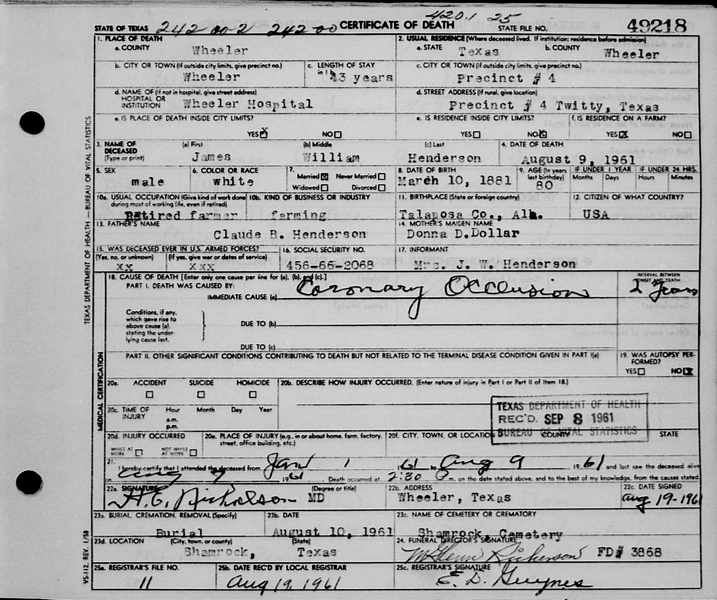 4201 25
STATE OF TEXAS 242 00-2 242 00 CERTIFICATE OF DEATH STATE FILE NO. 49218
1. PLACE OF DEATH
a. COUNTY Wheeler
2. USUAL RESIDENCE (Where deceased lived. If institution: residence before admission)
a. STATE Texas b. COUNTY Wheeler
b. CITY OR TOWN (If outside city limits, give precinct no.) Wheeler
c. LENGTH OF STAY in 1b 43 years
c. CITY OR TOWN (If outside city limits, give precinct no.) Precinct # 4
d. NAME OF (If not in hospital, give street address) HOSPITAL OR INSTITUTION Wheeler Hospital
d. STREET ADDRESS (If rural, give location) Precinct # 4 Twitty, Texas
e. IS PLACE OF DEATH INSIDE CITY LIMITS? YES X NO
e. IS RESIDENCE INSIDE CITY LIMITS? YES NO X
f. IS RESIDENCE ON A FARM? YES X NO
3. NAME OF DECEASED (Type or print)
(a) First James (b) Middle William (c) Last Henderson
4. DATE OF DEATH August 9, 1961
5. SEX male
6. COLOR OR RACE white
7. Married X Never Married Widowed Divorced
8. DATE OF BIRTH March 10, 1881
9. AGE (In years last birthday) 80
IF UNDER 1 YEAR Months Days
IF UNDER 24 HRS. Hours Minutes
10a. USUAL OCCUPATION (Give kind of work done during most of working life, even if retired) Retired farmer
10b. KIND OF BUSINESS OR INDUSTRY farming
11. BIRTHPLACE (State or foreign country) Talaposa Co., Ala.
12. CITIZEN OF WHAT COUNTRY? USA
13. FATHER'S NAME Claude B. Henderson
14. MOTHER'S MAIDEN NAME Donna D.Dollar
15. WAS DECEASED EVER IN U.S. ARMED FORCES? (Yes, no, or unknown) xx (If yes, give war or dates of service) xxx
16. SOCIAL SECURITY NO. 456-66-2068
17. INFORMANT Mrs. J. W. Henderson
18. CAUSE OF DEATH [Enter only one cause per line for (a), (b), and (c).]
PART I. DEATH WAS CAUSED BY:
IMMEDIATE CAUSE (a) Coronary Occlusion
INTERVAL BETWEEN ONSET AND DEATH 2 years
Conditions, if any, which gave rise to above cause (a), stating the underlying cause last.
DUE TO (b)
DUE TO (c)
PART II. OTHER SIGNIFICANT CONDITIONS CONTRIBUTING TO DEATH BUT NOT RELATED TO THE TERMINAL DISEASE CONDITION GIVEN IN PART I(a)
19. WAS AUTOPSY PERFORMED? YES NO X
20a. ACCIDENT SUICIDE HOMICIDE
20b. DESCRIBE HOW INJURY OCCURRED. (Enter nature of injury in Part I or Part II of item 18.)
20c. TIME OF INJURY Hour a.m. p.m. Month Day Year
TEXAS DEPARTMENT OF HEALTH
REC'D SEP 8 1961
BUREAU OF VITAL STATISTICS
20d. INJURY OCCURRED WHILE AT WORK NOT WHILE AT WORK
20e. PLACE OF INJURY (e.g., in or about home, farm, factory, street, office building, etc.)
20f. CITY, TOWN, OR LOCATION COUNTY STATE
21. I hereby certify that I attended the deceased from Jan 1 1961, Aug 9 1961 and last saw the deceased alive
Aug 9 1961 Death occurred at 2:30 P m. on the date stated above; and to the best of my knowledge, from the causes stated.
22a. SIGNATURE H. E. Nicholson (Degree or title) MD
22b. ADDRESS Wheeler, Texas
22c. DATE SIGNED Aug 19-1961
23a. BURIAL, CREMATION, REMOVAL (Specify) Burial
23b. DATE August 10, 1961
23c. NAME OF CEMETERY OR CREMATORY Shamrock Cemetery
23d. LOCATION (City, town, or county) Shamrock, (State) Texas
24. FUNERAL DIRECTOR'S SIGNATURE Richerson FD# 3868
25a. REGISTRAR'S FILE NO. 11
25b. DATE REC'D BY LOCAL REGISTRAR Aug 19, 1961
25c. REGISTRAR'S SIGNATURE E. D. Guynes
TEXAS DEPARTMENT OF HEALTH — BUREAU OF VITAL STATISTICS
MEDICAL CERTIFICATION
VS-112 REV. 1/58